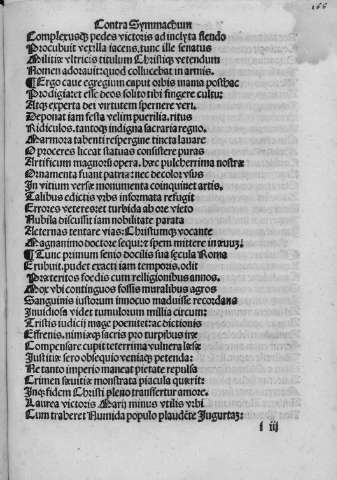 166
Contra Symmachum
Complexusq; pedes victoris ad inclyta flendo
Procubuit vexilla iacens, tunc ille senatus
Militiæ vltricis titulum Christiq; verendum
Nomen adorauit: quod collucebat in armis.
¶ Ergo caue egregium caput orbis inania posthac
Prodigia esse deos solito tibi fingere cultu:
Atq; experta dei virtutem spernere veri.
Deponat iam festa velim puerilia, ritus
Ridiculos, tantoq; indigna sacraria regno.
Marmora tabenti respergine tincta lauare
O proceres liceat statuas consistere puras
Artificum magnorū opera, hæc pulcherrima nostræ
Ornamenta fuant patriæ: nec decolor vsus
In vitium versæ monumenta coinquinet artis.
Talibus edictis vrbs informata refugit
Errores veteres: et turbida ab ore vieto
Nubila discussit iam nobilitate parata
Aeternas tentare vias: Christumq; vocante
Magnanimo doctore sequi: et spem mittere in æuū;
¶ Tunc primum senio docilis sua sęcula Roma
Erubuit, pudet exacti iam temporis, odit
Præteritos foedis cum relligionibus annos.
Mox vbi contiguos fossis muralibus agros
Sanguinis iustorum innocuo maduisse recordans
Inuidiosa videt tumulorum millia circum:
Tristis iudicij mage poenitet: ac dictionis
Effrenis, nimiæq; sacris pro turpibus iræ
Compensare cupit teterrima vulnera læsæ
Justitiæ sero obsequio veniaq; petenda:
Ne tanto imperio maneat pietate repulsa
Crimen sæuitiæ monstrata piacula quærit:
Inq; fidem Christi pleno transfertur amore.
Laurea victoris Marij minus vtilis vrbi
Cum traheret Numida populo plaudēte Jugurtaȝ:
i iij